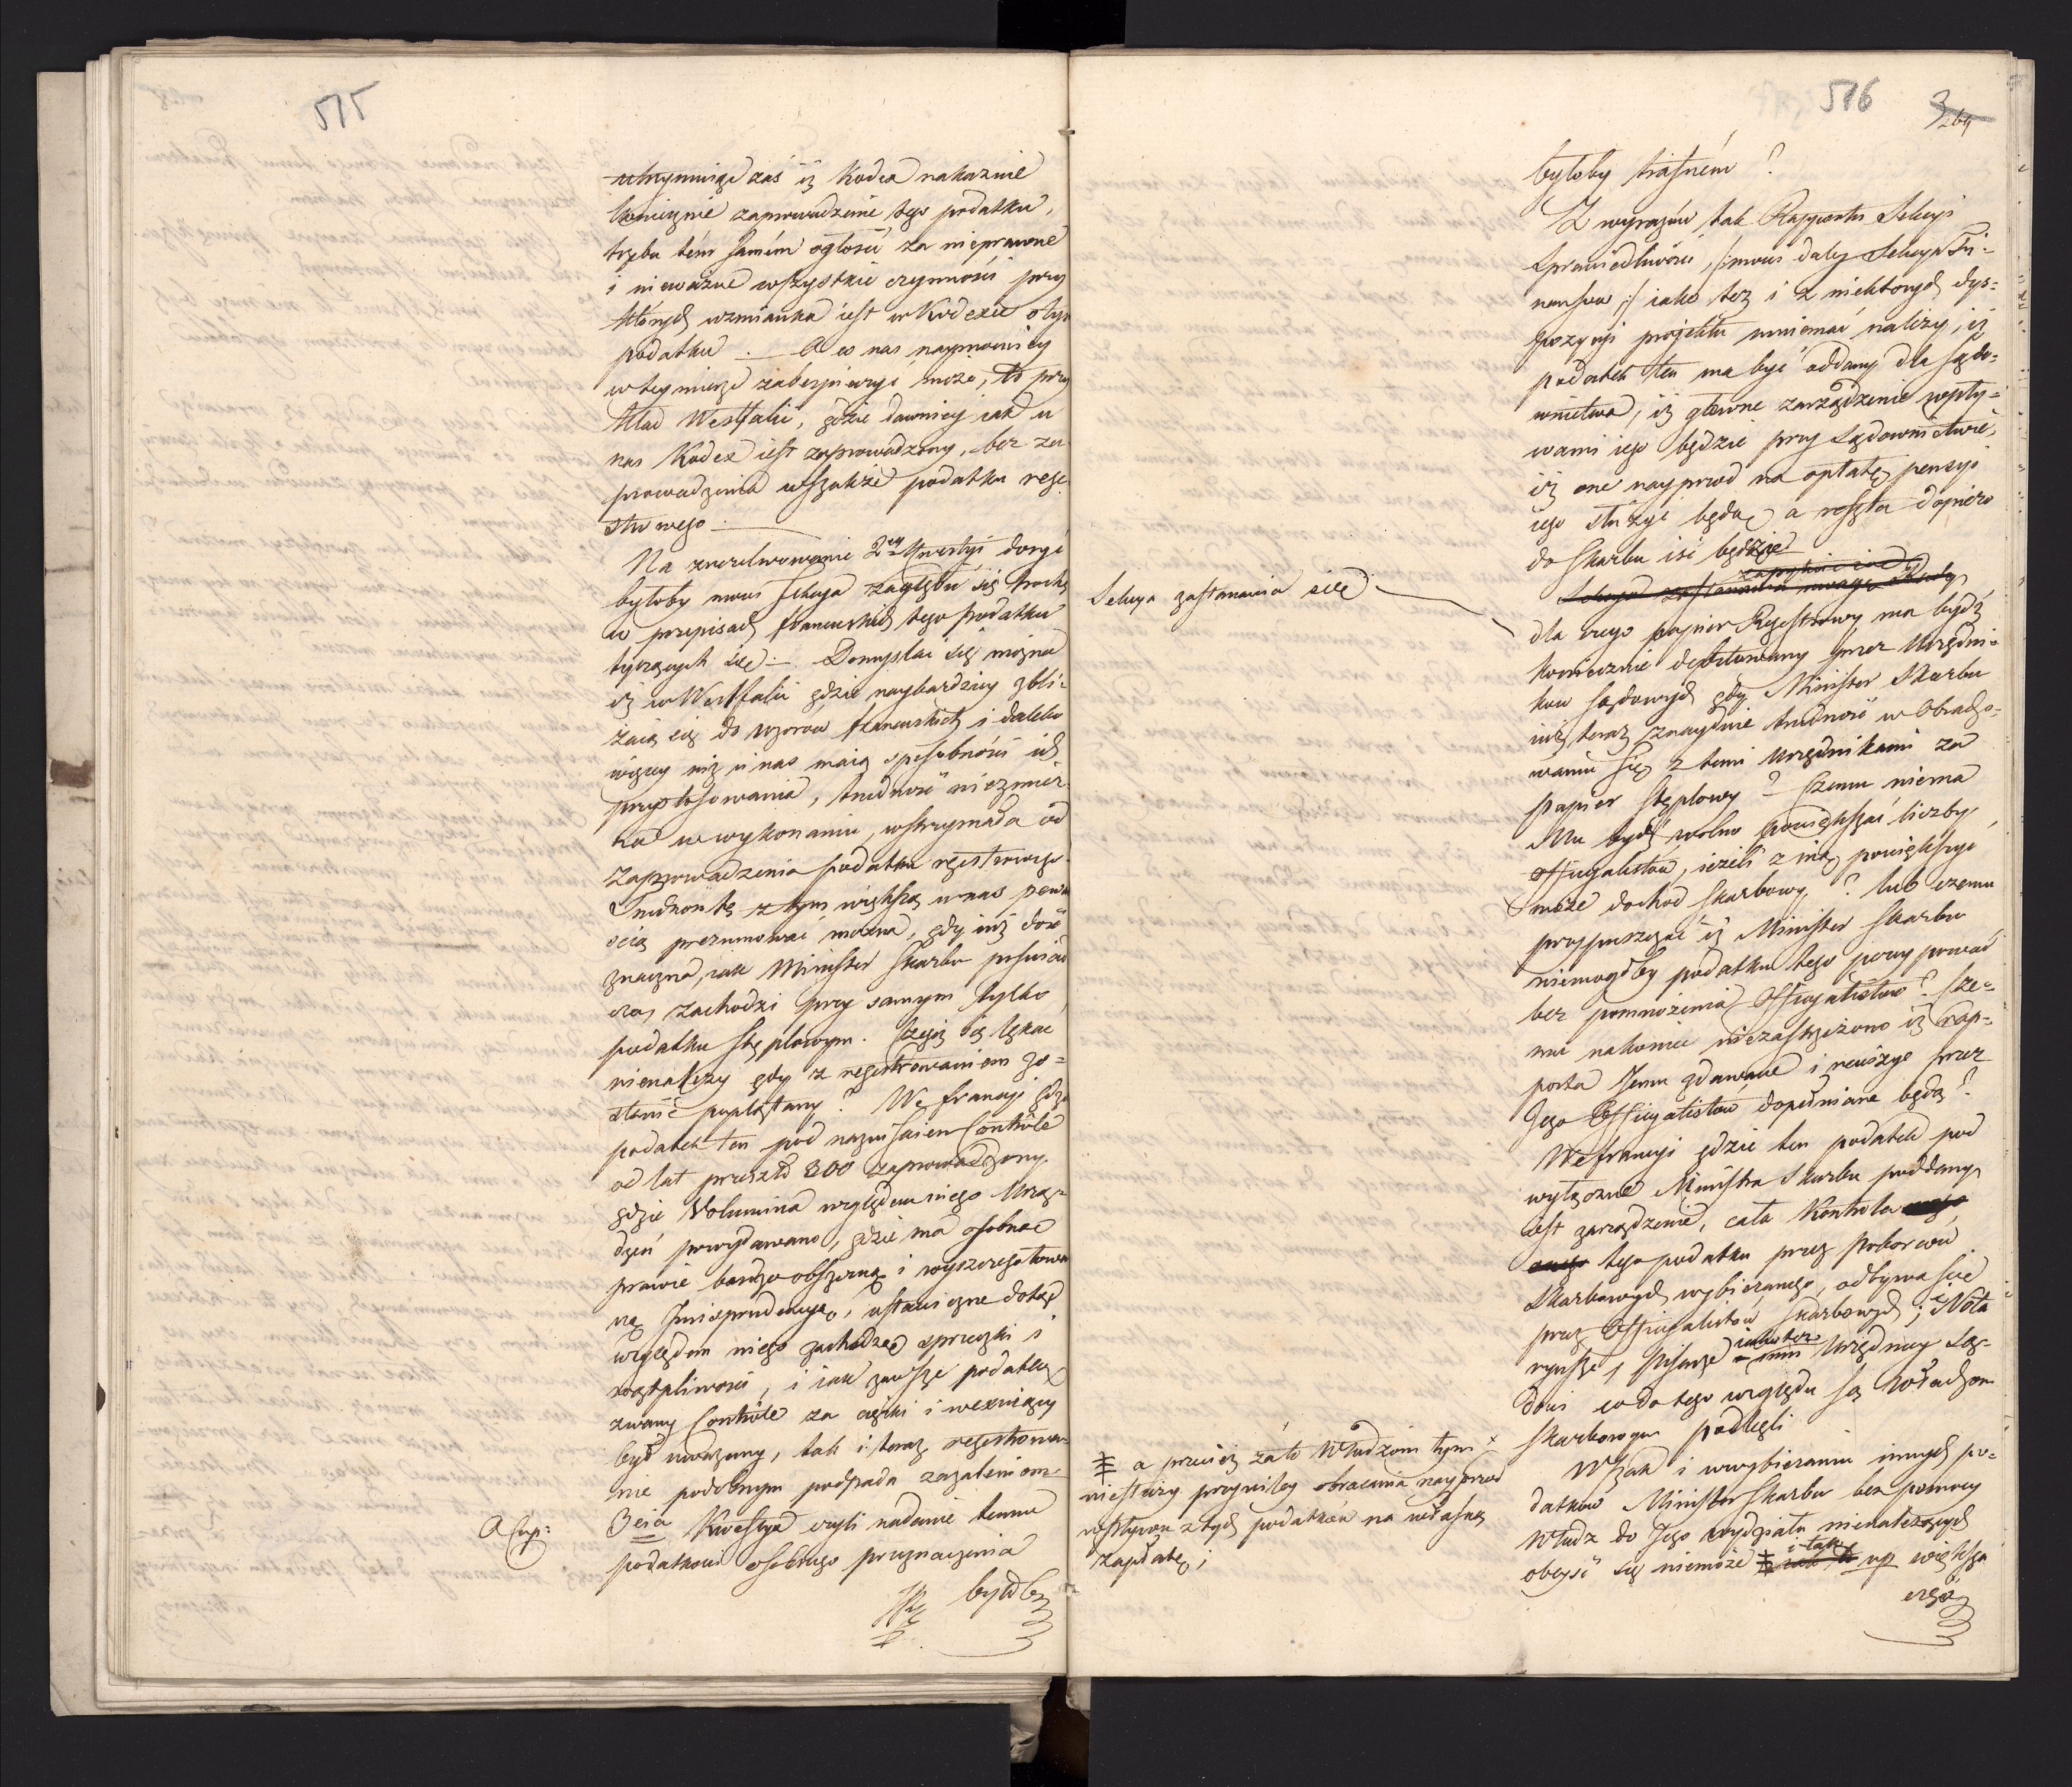 515
utrzymuiąc zaś iż Kodex nakazuie
koniecznie zaprowadzenie tego podatku,
trzeba tém samém ogłosić za nieprawne
i nieważne wszystkie czynności przy
których wzmianka iest w Kodexie o tym
podatku. — A co nas naymocniey
w tey mierze zabezpieczyć może, to przy
kład Westfalii, gdzie dawniey iak u
nas Kodex iest zaprowadzony, bez za
prowadzenia wszakże podatku reje
strowego. —
Na zrezolwowanie 2ey Kwestyi dosyć
byłoby mówi Sekcya zagłębić się trochę
w przepisach francuskich tego podatku
tyczących się. — Domyślać się można
iż w Westfalii gdzie naybardziey zbli-
żaią się do wzorów francuskich i daleko
więcey niż u nas maią sposobności ich
przystosowania, trudność niezmier
na w wykonaniu, wstrzymała od
zaprowadzenia podatku rejestrowego.
Trudność tę z tym większą u nas pewno
ścią prezumować można, gdy iuż dość
znaczna, iak Minister Skarbu poświad
cza, zachodzi przy samym tylko
podatku stęplowym. Czegóż się lękać
nienależy gdy z rejestrowaniem zo-
stanie poplątany? We francyi gdzie
podatek ten pod nazwiskiem Contrôle
od lat przeszło 300 zaprowadzony
gdzie Volumina względem niego Urzą-
dzeń powydawano, gdzie ma osobną
prawie bardzo obszerną i wyszczegółowa
ną Jurisprudencyą, ustawiczne dotąd
względem niego zachodzą sprzeczki i
wątpliwości, i iak zawsze podatek
zwany Contrôle za ciężki i wexuiący
był uważany, tak i teraz rejestrowa-
nie podobnym podpada zażaleniom.
3cia Kwestya czyli nadanie temu
podatkowi osobnego przeznaczenia
byłoby
516
3
269
byłoby trafném?
Z wyrazów tak Rapportu Sekcyi
Sprawiedliwości, /: mówi daley Sekcya Fi-
nansów :/ iako też i z niektorych dys-
pozycyi projektu mniemać należy, iż
podatek ten ma być oddany dla Sądo-
wnictwa, iż główne zarządzenie wpły-
wami iego będzie przy Sądownictwie,
iż one nayprzod na opłatę pensyi
iego służyć będą a reszta dopiero
do Skarbu iść będzie
Sekcya zastanawia się
dla czego papier Rejestrowy ma bydź
koniecznie debitowany przez Urzędni-
ków sądowych gdy Minister Skarbu
iuż teraz znayduie trudność w Obracho-
waniu się z temi Urzędnikami za
papier stęplowy? Czemu niema
Mu bydź wolno powiększać liczby
Officyalistów, ieżeli z nią powiększyć
może dochod skarbowy? lub czemu
przypuszczać iż Minister Skarbu
niemogłby podatku tego
bez pomnożenia Officyalistów? Cze-
mu nakoniec niezastrzeżono iż Rap-
porta Jemu zdawane i rewizye przez
Jego Officyalistów dopełniane będą?
We francyi gdzie ten podatek pod
wyłączne Ministra Skarbu poddany
iest zarządzenie, cała Kontrola
tego podatku przez Poborców
Skarbowych wybieranego, odbywa się
przez Officyalistów skarbowych; Nota
ryusze, Pisarze iako też inni Urzędnicy Są-
dowi co do tego względu są Władzom
skarbowym podlegli
Wszak i w wybieraniu innych po-
datków Minister Skarbu bez pomocy
Władz do Jego wydziału nienależących
obeyść się niemoże ‡ i tak np większa
‡ a przecież za to Władzom tym
niesłuży przywiley obracania nayprzod
wpływu z tych podatków na własną
zapłatę;